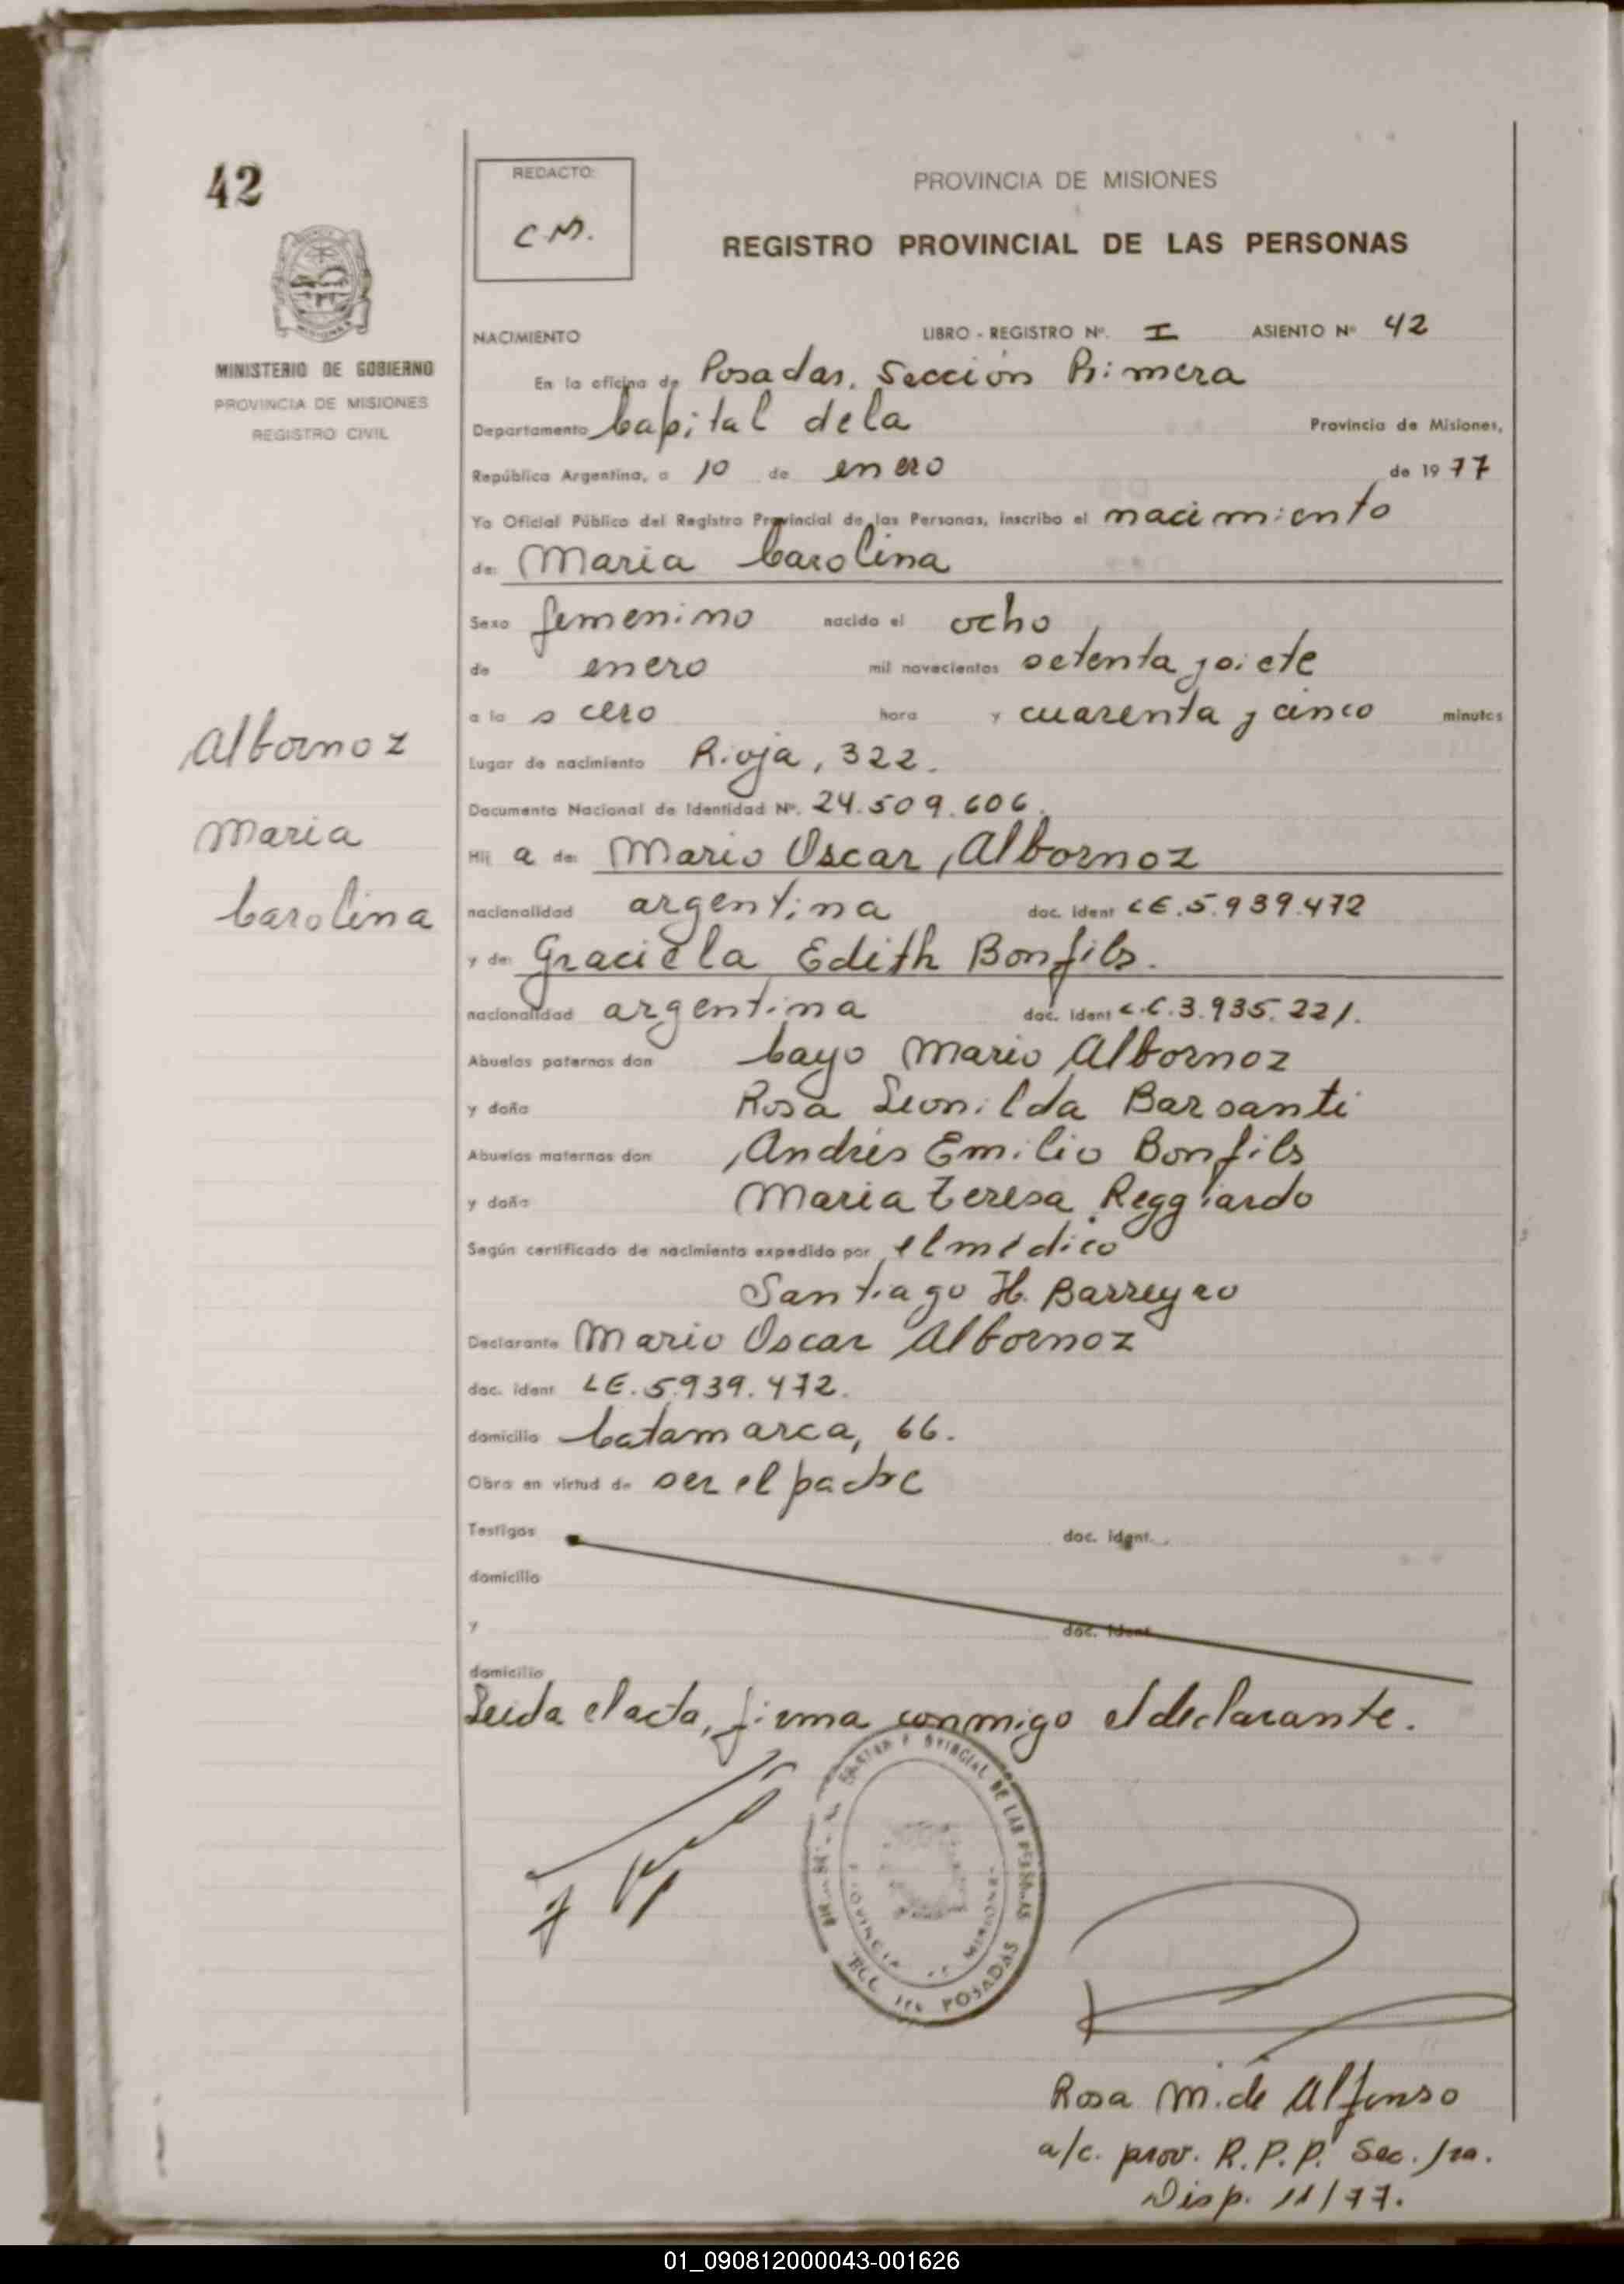 42
REDACTO:
C.M.
PROVINCIA DE MISIONES
REGISTRO PROVINCIAL DE LAS PERSONAS
MINISTERIO DE GOBIERNO
PROVINCIA DE MISIONES
REGISTRO CIVIL
NACIMIENTO LIBRO - REGISTRO Nº. I ASIENTO Nº 42
En la oficina de Posadas, Sección Primera
Departamento Capital de la Provincia de Misiones,
República Argentina, a 10 de enero de 1977
Yo Oficial Público del Registro Provincial de las Personas, inscribo el nacimiento
de: Maria Carolina
Sexo femenino nacido el ocho
de enero mil novecientos setenta y siete
a la s cero hora y cuarenta y cinco minutos
Lugar de nacimiento Rioja, 322.
Documento Nacional de Identidad Nº. 24.509.606.
Albornoz
Maria
Carolina
Hij a de: Mario Oscar Albornoz
nacionalidad argentina doc. ident LE.5.939.472
y de: Graciela Edith Bonfils.
nacionalidad argentina doc. ident L.C.3.935.221.
Abuelos paternos don Cayo Mario Albornoz
y doña Rosa Leonilda Barsanti
Abuelos maternos don Andrés Emilio Bonfils
y doña Maria Teresa Reggiardo
Según certificado de nacimiento expedido por el médico
Santiago H. Barreyro
Declarante Mario Oscar Albornoz
doc. ident LE.5.939.472.
domicilio Catamarca, 66.
Obra en virtud de ser el padre
Testigos doc. ident.
domicilio
y doc. ident
domicilio
Leida el acta, firma conmigo el declarante.
PROVINCIAL DE LAS PERSONAS
PROVINCIA DE MISIONES
POSADAS
Rosa M. de Alfonso
a/c. prov. R.P.P. Sec. 1ra.
Disp. 11/77.
01_090812000043-001626